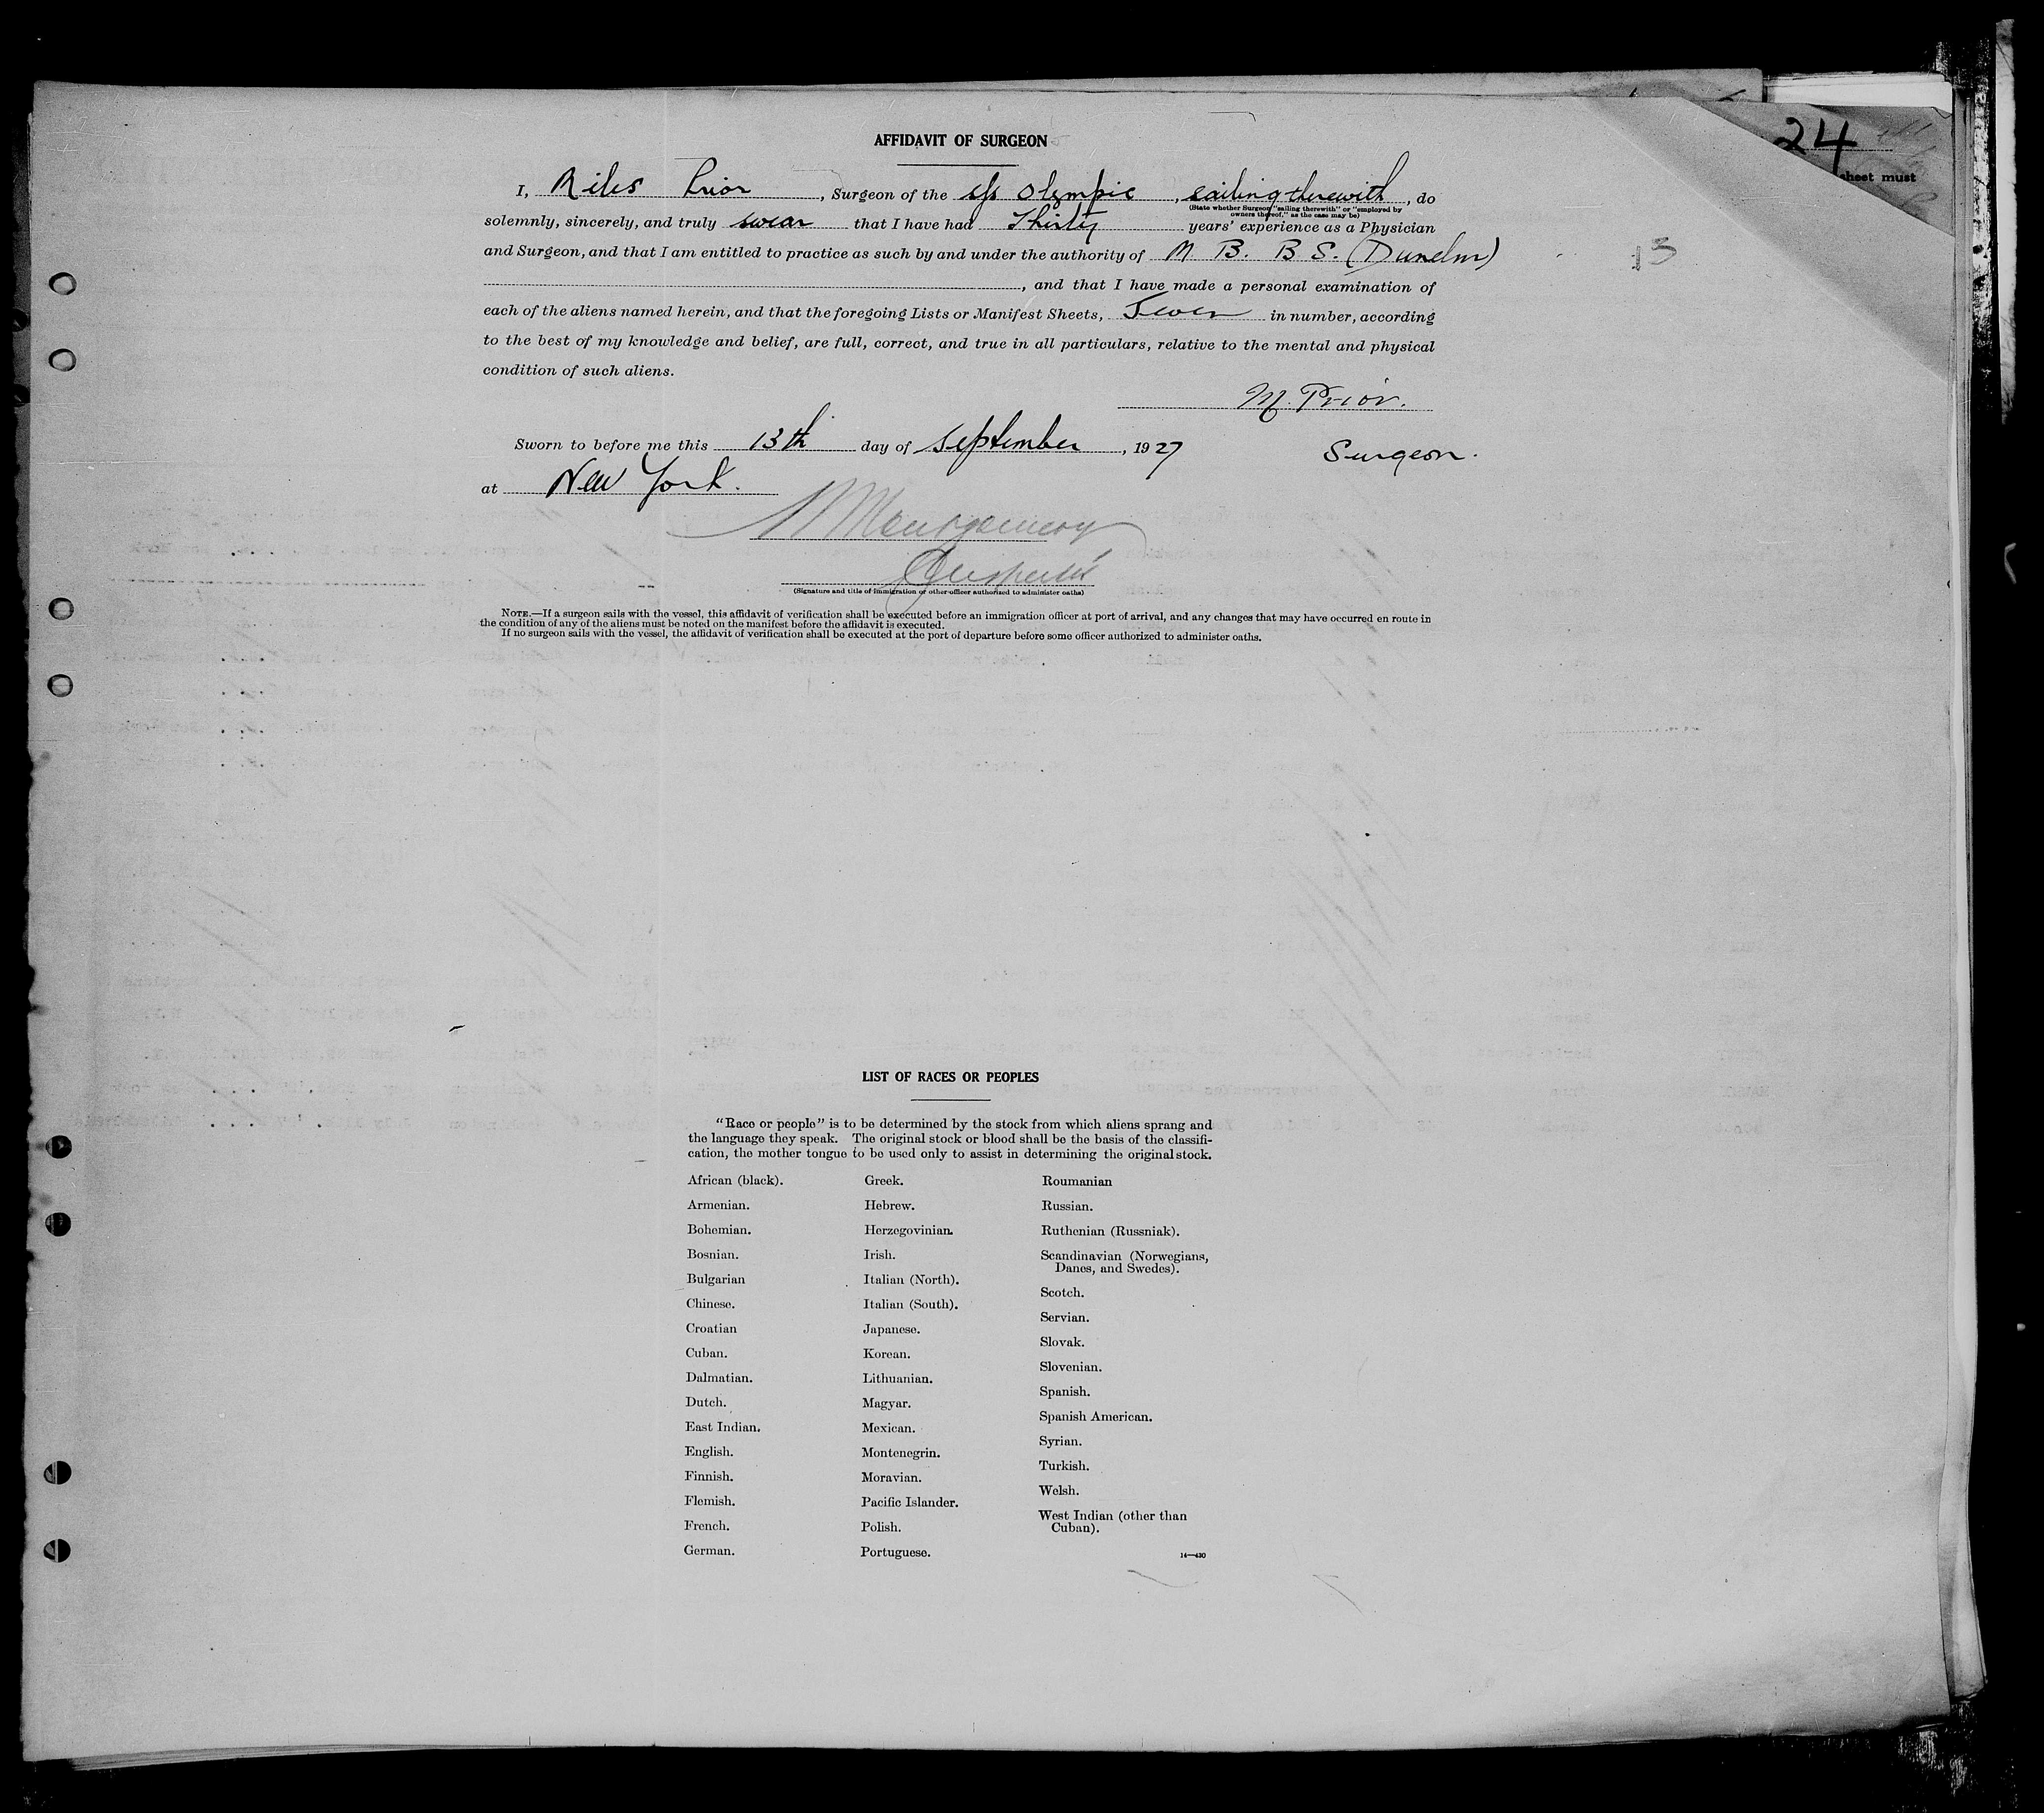 24
sheet must
AFFIDAVIT OF SURGEON
I, Miles Prior, Surgeon of the s/s Olympic, sailing therewith, do
(State whether Surgeon "sailing therewith" or "employed by
owners thereof," as the case may be)
solemnly, sincerely, and truly swear that I have had Thirty years' experience as a Physician
and Surgeon, and that I am entitled to practice as such by and under the authority of M. B. B S. (Dunelm)
13
, and that I have made a personal examination of
each of the aliens named herein, and that the foregoing Lists or Manifest Sheets, Seven in number, according
to the best of my knowledge and belief, are full, correct, and true in all particulars, relative to the mental and physical
condition of such aliens.
M. Prior.
Sworn to before me this 13th day of September, 1927
Surgeon.
at New York.
Montgomery
(Signature and title of immigration or other officer authorized to administer oaths)
NOTE.—If a surgeon sails with the vessel, this affidavit of verification shall be executed before an immigration officer at port of arrival, and any changes that may have occurred en route in
the condition of any of the aliens must be noted on the manifest before the affidavit is executed.
If no surgeon sails with the vessel, the affidavit of verification shall be executed at the port of departure before some officer authorized to administer oaths.
LIST OF RACES OR PEOPLES
"Race or people" is to be determined by the stock from which aliens sprang and
the language they speak. The original stock or blood shall be the basis of the classifi-
cation, the mother tongue to be used only to assist in determining the original stock.
African (black).
Armenian.
Bohemian.
Bosnian.
Bulgarian
Chinese.
Croatian
Cuban.
Dalmatian.
Dutch.
East Indian.
English.
Finnish.
Flemish.
French.
German.
Greek.
Hebrew.
Herzegovinian.
Irish.
Italian (North).
Italian (South).
Japanese.
Korean.
Lithuanian.
Magyar.
Mexican.
Montenegrin.
Moravian.
Pacific Islander.
Polish.
Portuguese.
Roumanian
Russian.
Ruthenian (Russniak).
Scandinavian (Norwegians,
Danes, and Swedes).
Scotch.
Servian.
Slovak.
Slovenian.
Spanish.
Spanish American.
Syrian.
Turkish.
Welsh.
West Indian (other than
Cuban).
14—430